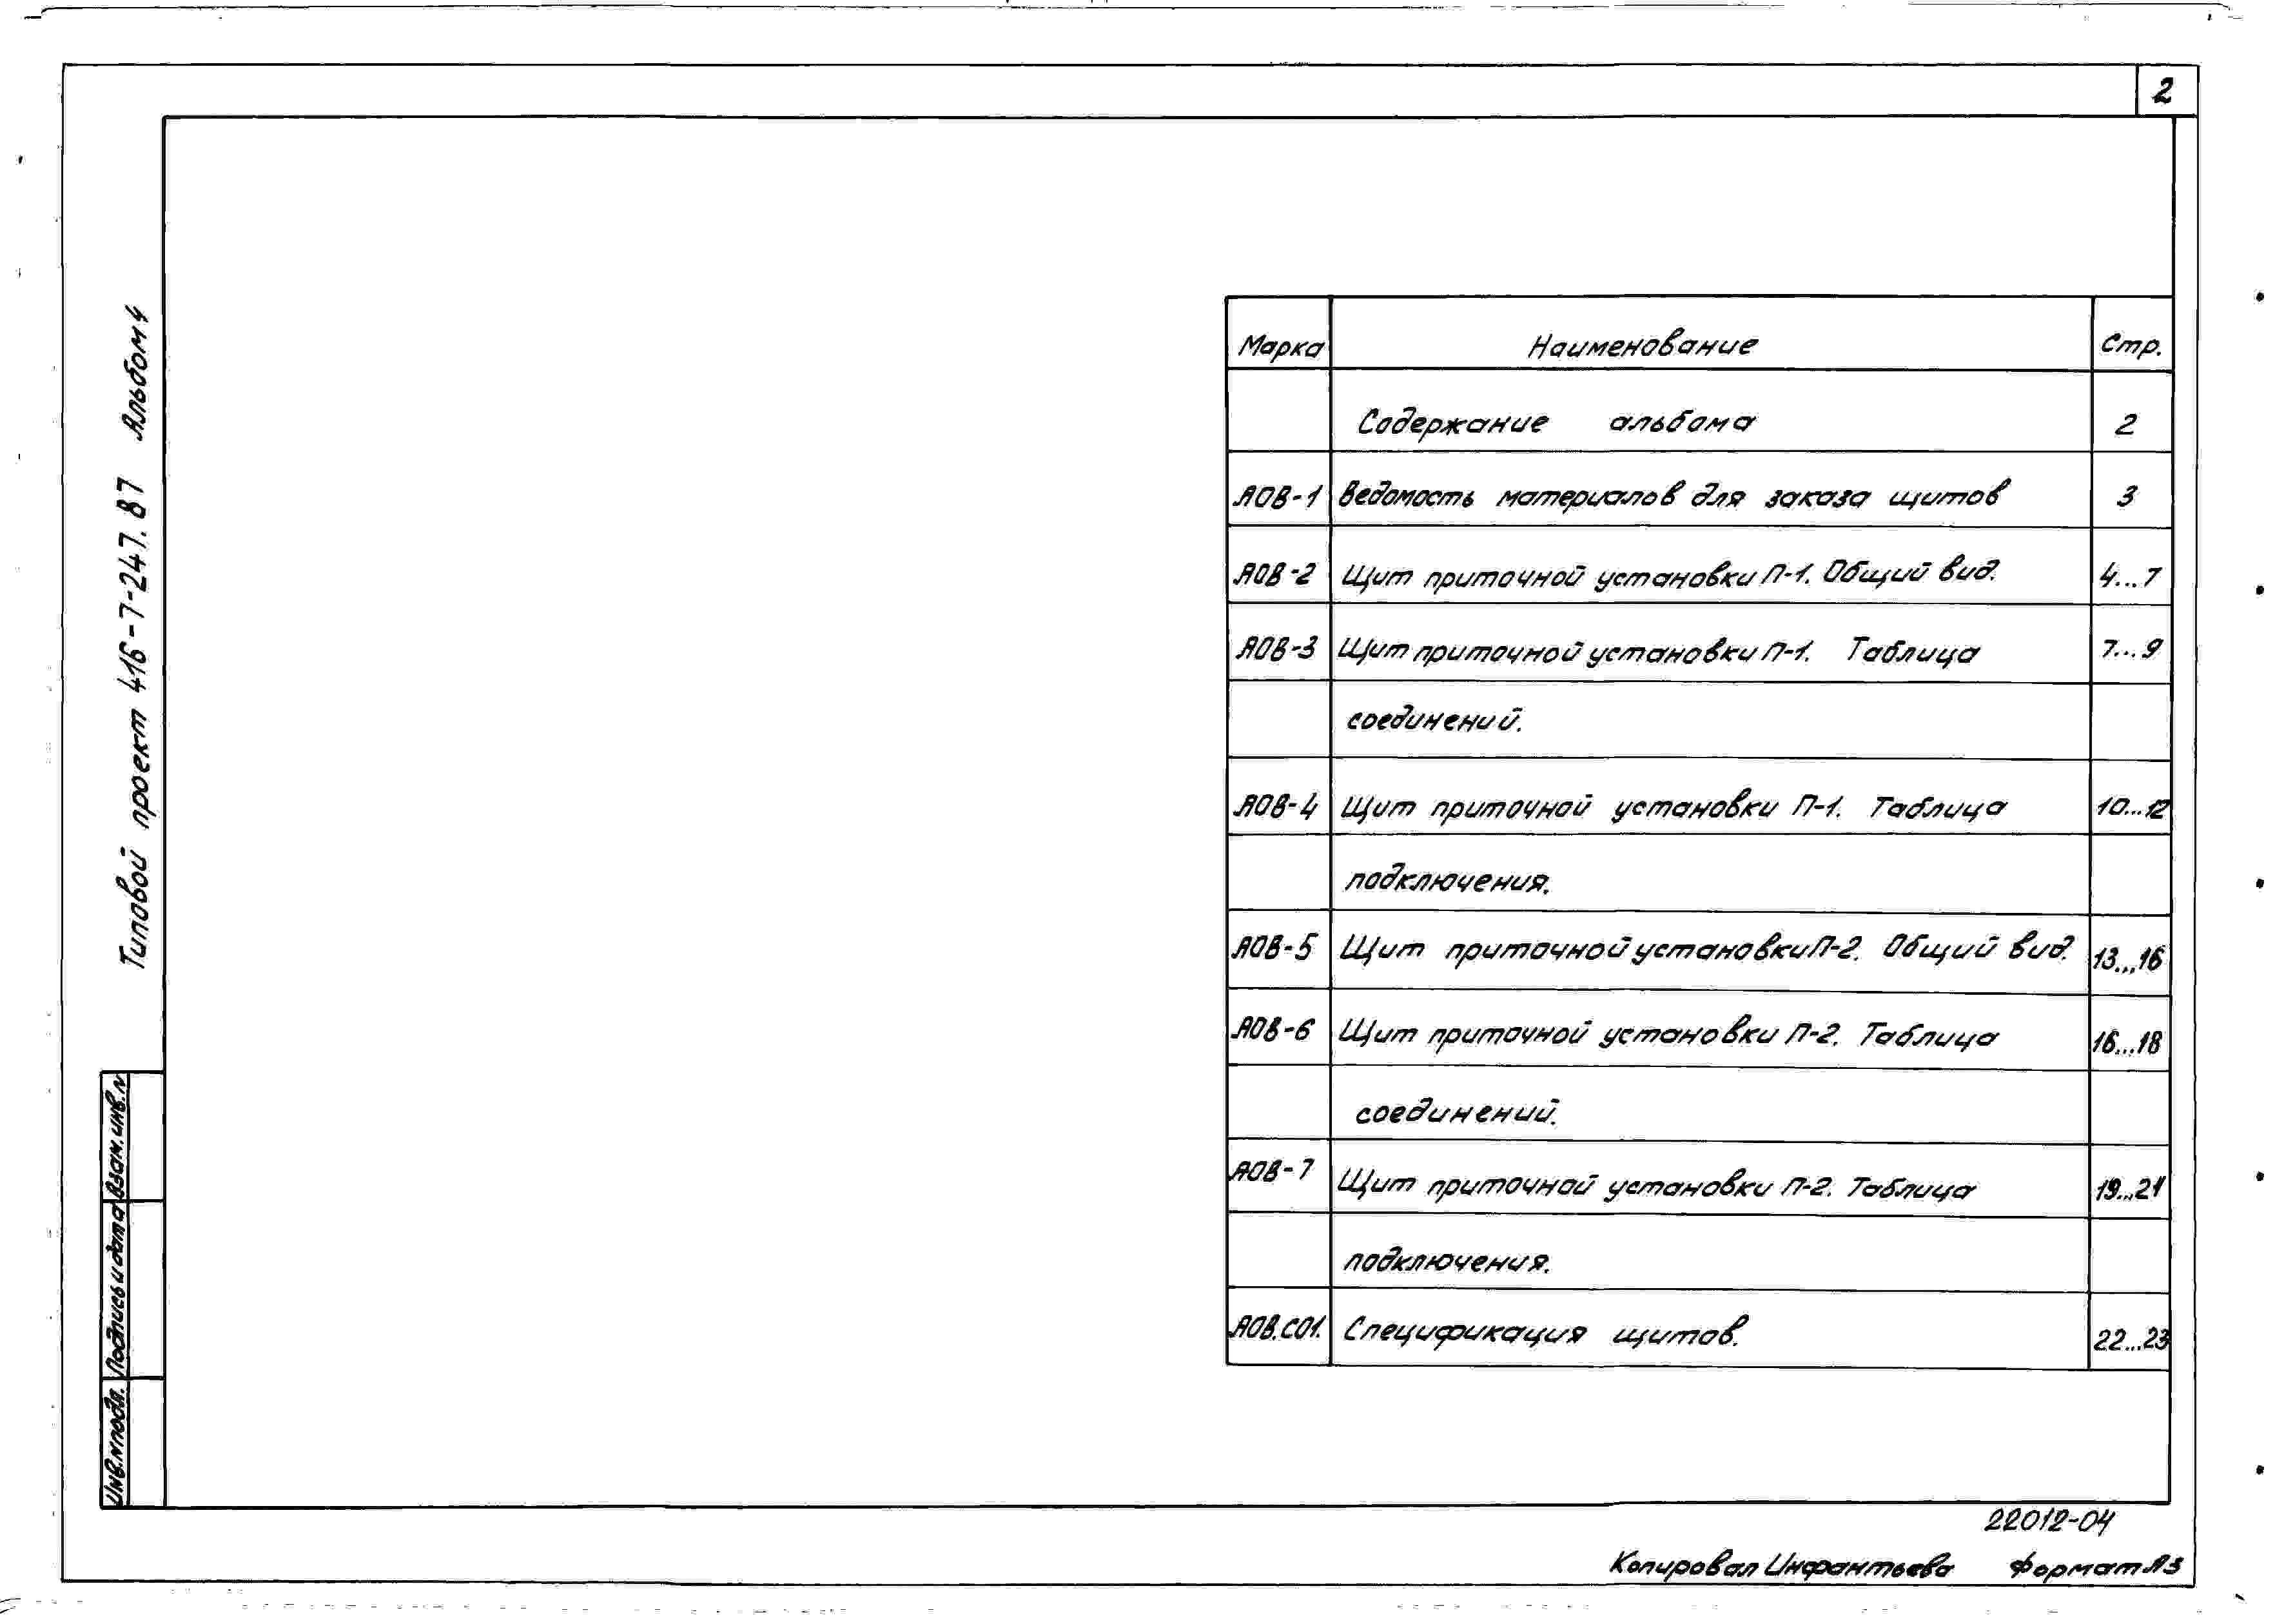 2
Типовой проект 416-7-247.87 Альбом 4
Марка Наименование Стр.
Содержание альбома 2
АОВ-1 Ведомость материалов для заказа щитов 3
АОВ-2 Щит приточной установки П-1. Общий вид. 4...7
АОВ-3 Щит приточной установки П-1. Таблица 7...9
соединений.
АОВ-4 Щит приточной установки П-1. Таблица 10...12
подключения.
АОВ-5 Щит приточной установки П-2. Общий вид. 13...16
АОВ-6 Щит приточной установки П-2. Таблица 16...18
соединений.
АОВ-7 Щит приточной установки П-2. Таблица 19...21
подключения.
АОВ.СО1. Спецификация щитов. 22...23
Инв.N подл. Подпись и дата Взам.инв.N
22012-04
Копировал Инфантьева Формат А3